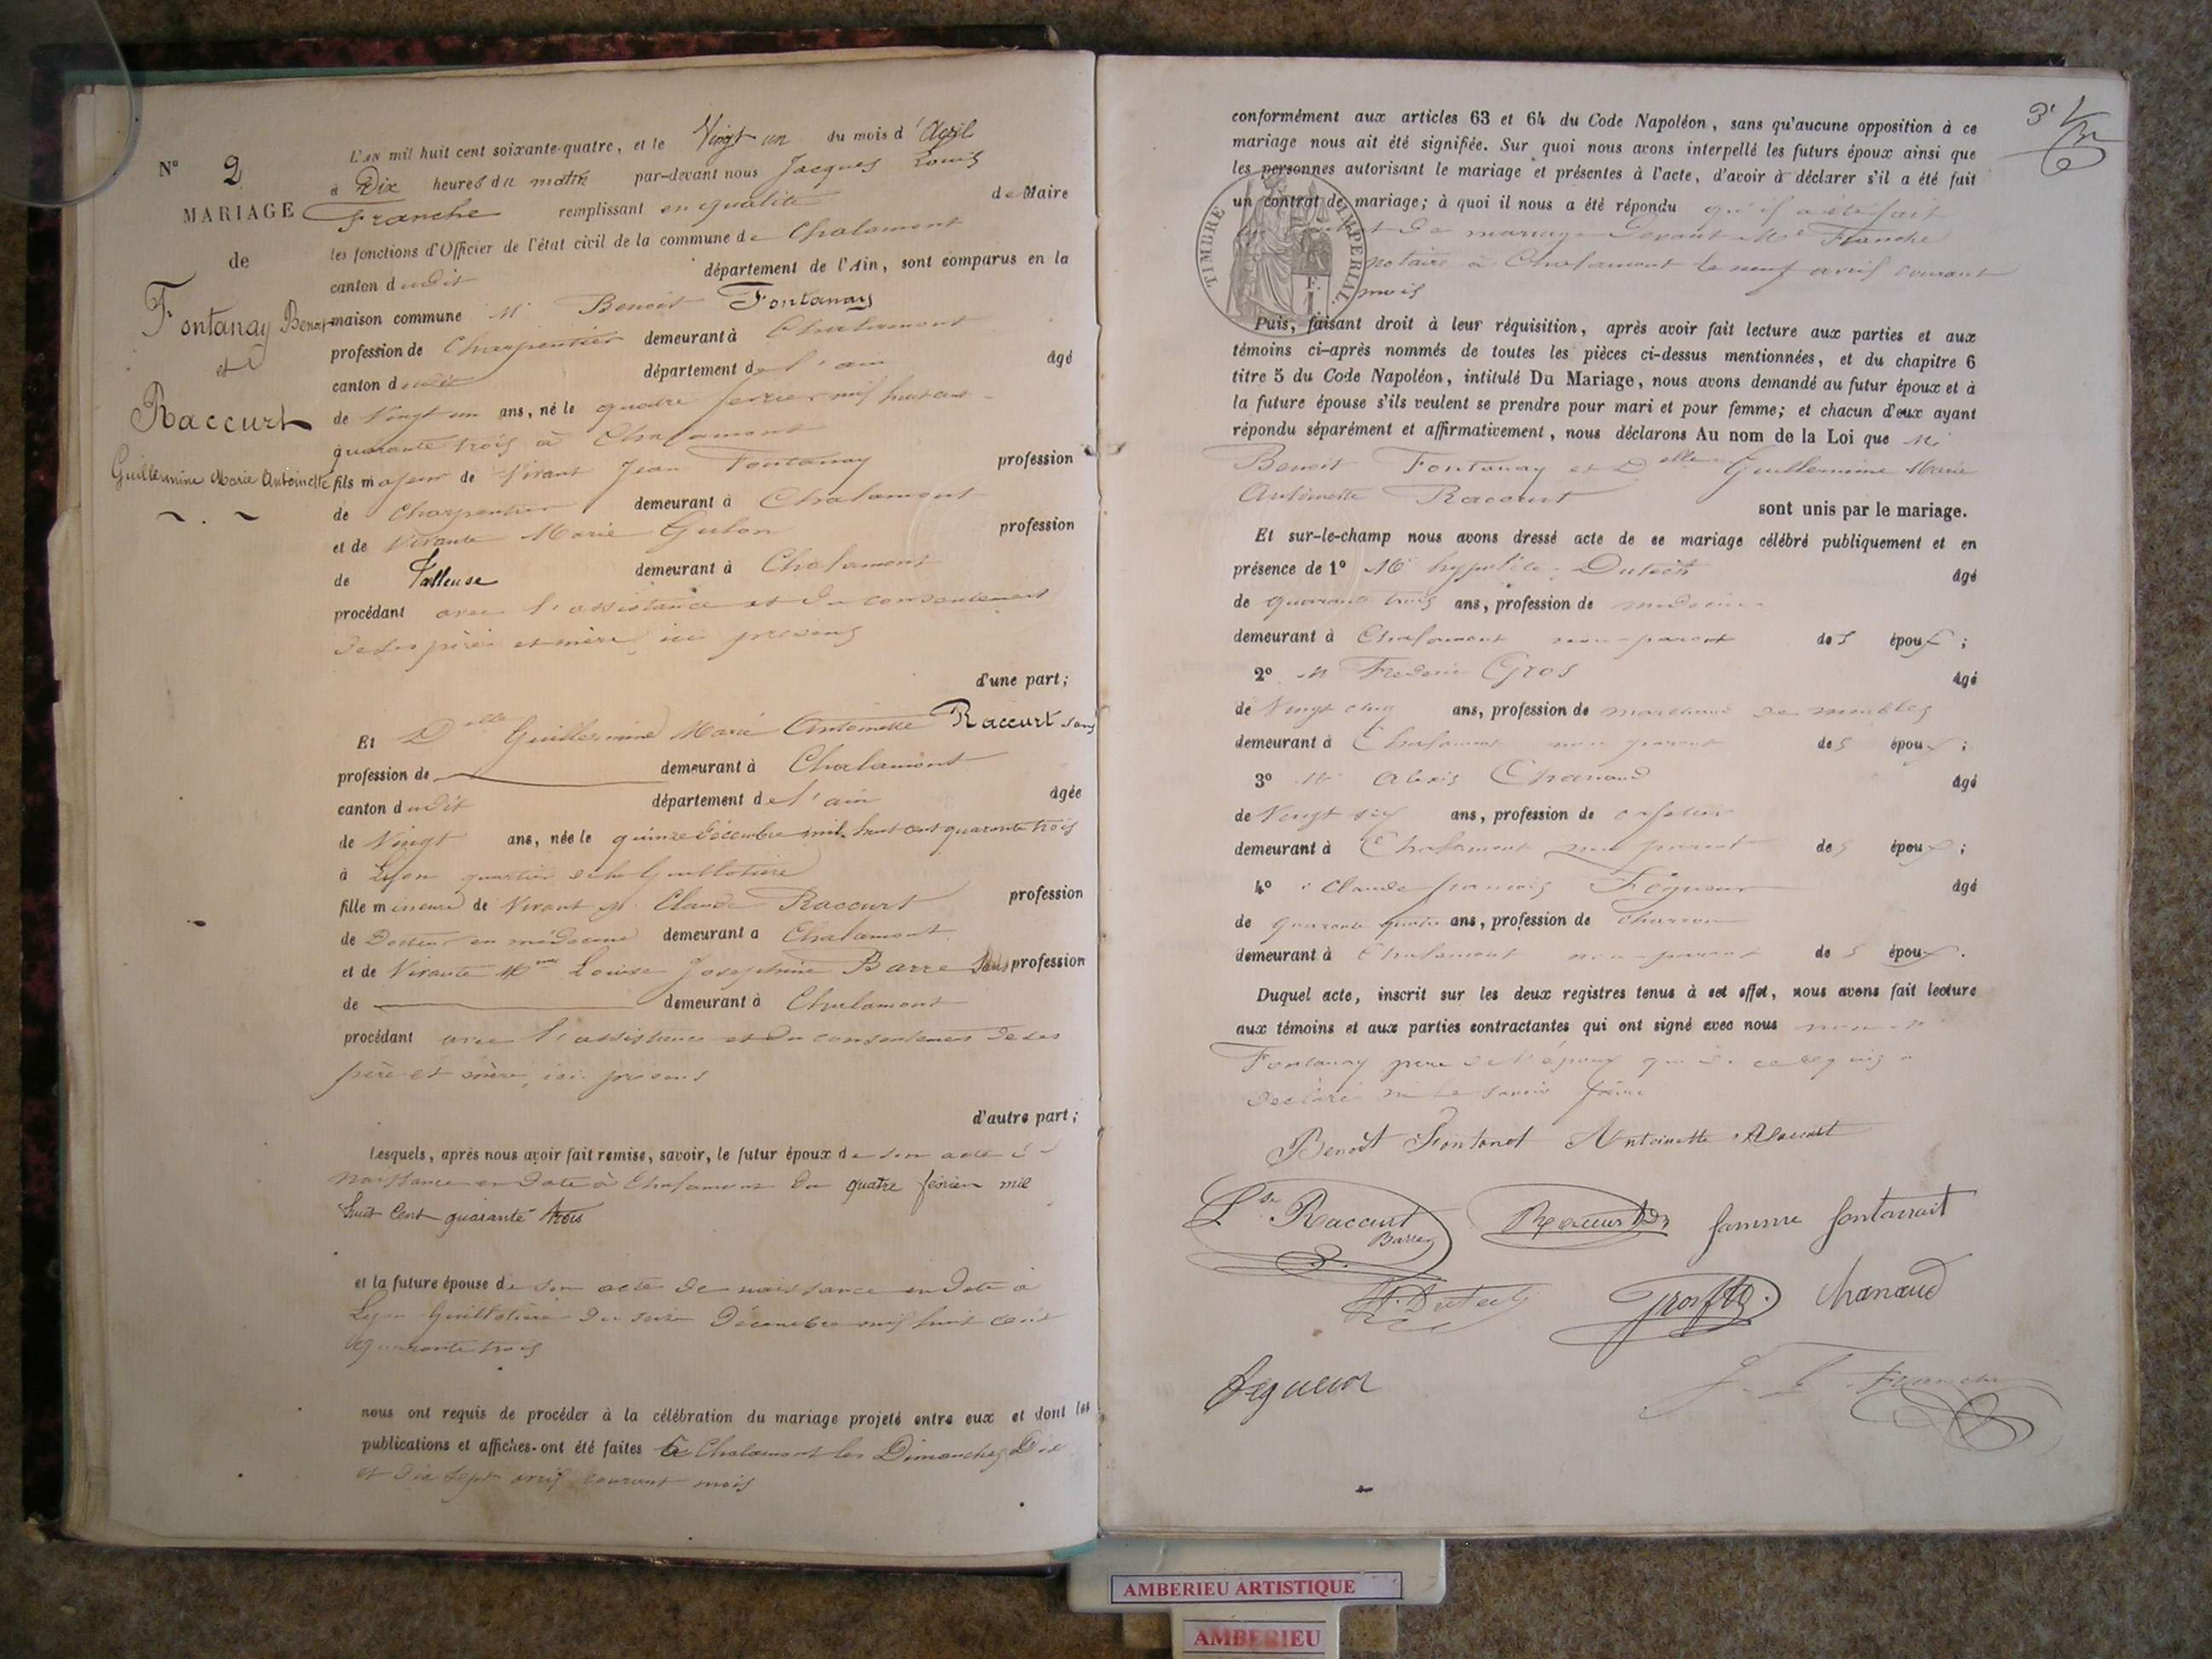 N° 2
MARIAGE
de
Fontanay Benoit
et
Raccurt
Guillermine Marie Antoinette
L'AN mil huit cent soixante-quatre, et le Vingt un du mois d'Avril
à Dix heures du matin par-devant nous Jacques Louis
Franche remplissant en qualité de Maire
les fonctions d'Officier de l'état civil de la commune de Chalamont
canton dudit département de l'Ain, sont comparus en la
maison commune M Benoit Fontanay
profession de Charpentier demeurant à Chalamont
canton dudit département de l'ain âgé
de Vingt un ans, né le quatre février mil huit cent
quarante trois à Chalamont
fils majeur de Vivant Jean Fontanay profession
de Charpentier demeurant à Chalamont
et de Vivante Marie profession
de Tailleuse demeurant à Chalamont
procédant avec l'assistance et du consentement
de ses père et mère ici présens
d'une part;
Et Delle Guillermine Marie Antoinette Raccurt sans
profession de demeurant à Chalamont
canton dudit département de l'ain âgée
de Vingt ans, née le quinze Décembre mil huit cent quarante trois
à Lyon quartier de la Guillotière
fille mineure de Vivant M. Claude Raccurt profession
de Docteur en médecine demeurant à Chalamont
et de Vivante Mme Louise Josephine Barre Sans profession
de demeurant à Chalamont
procédant avec l'assistance et du consentement de ses
père et mère, ici présens
d'autre part;
Lesquels, après nous avoir fait remise, savoir, le futur époux de son acte de
naissance en date à Chalamont du quatre février mil
huit Cent quarante trois
et la future épouse de son acte de naissance en date à
Lyon Guillotière du seize Décembre mil huit cent
quarante trois
nous ont requis de procéder à la célébration du mariage projeté entre eux et dont les
publications et affiches ont été faites à Chalamont les Dimanches Dix
et dix sept avril courant mois
conformément aux articles 63 et 64 du Code Napoléon, sans qu'aucune opposition à ce
mariage nous ait été signifiée. Sur quoi nous avons interpellé les futurs époux ainsi que
les personnes autorisant le mariage et présentes à l'acte, d'avoir à déclarer s'il a été fait
un contrat de mariage; à quoi il nous a été répondu qu'il a été fait
de mariage devant Me Franche
notaire à Chalamont le neuf avril courant
mois
TIMBRE IMPERIAL
1 F.
Puis, faisant droit à leur réquisition, après avoir fait lecture aux parties et aux
témoins ci-après nommés de toutes les pièces ci-dessus mentionnées, et du chapitre 6
titre 5 du Code Napoléon, intitulé Du Mariage, nous avons demandé au futur époux et à
la future épouse s'ils veulent se prendre pour mari et pour femme; et chacun d'eux ayant
répondu séparément et affirmativement, nous déclarons Au nom de la Loi que M
Benoit Fontanay et Delle Guillermine Marie
Antoinette Raccurt sont unis par le mariage.
Et sur-le-champ nous avons dressé acte de ce mariage célébré publiquement et en
présence de 1° M hypolite Dutech âgé
de quarante trois ans, profession de médecin
demeurant à Chalamont non parent des époux;
2° M Frederic Gros âgé
de Vingt cinq ans, profession de marchand de meubles
demeurant à Chalamont non parent des époux;
3° M Alexis Chanaud âgé
de Vingt six ans, profession de cafetier
demeurant à Chalamont non parent des époux;
4° Claude françois Fégueur âgé
de quarante quatre ans, profession de Charron
demeurant à Chalamont non parent des époux.
Duquel acte, inscrit sur les deux registres tenus à cet effet, nous avons fait lecture
aux témoins et aux parties contractantes qui ont signé avec nous
Fontanay père de l'époux qui de ce requis a
déclaré ne le savoir faire
Benoît Fontanet Antoinette Raccurt
Lse Raccurt
Barre
Raccurt femme fontanait
H. Dutech Gros chanaud
fegueur J. L. Franche
AMBERIEU ARTISTIQUE
AMBERIEU